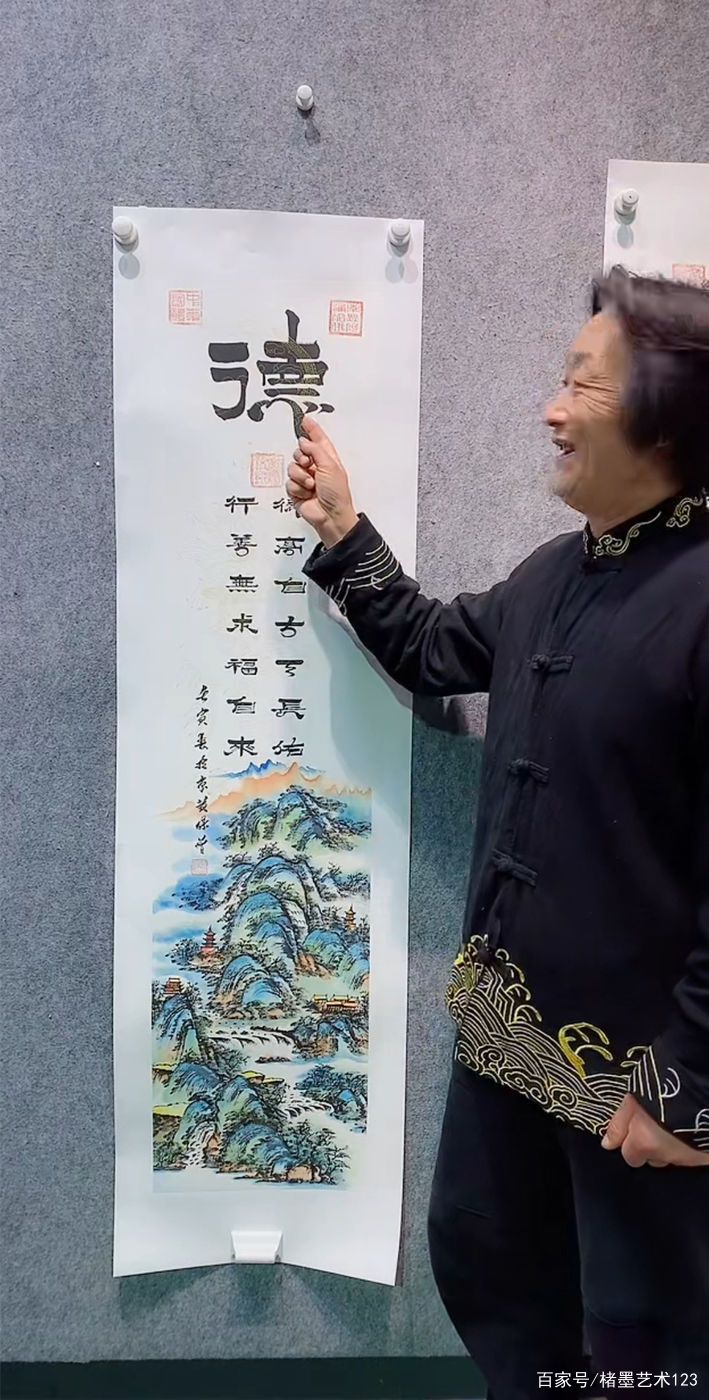 德
德高自古天長佑
行善無求福自來
壬寅夏於京
百家号/楮墨艺术123